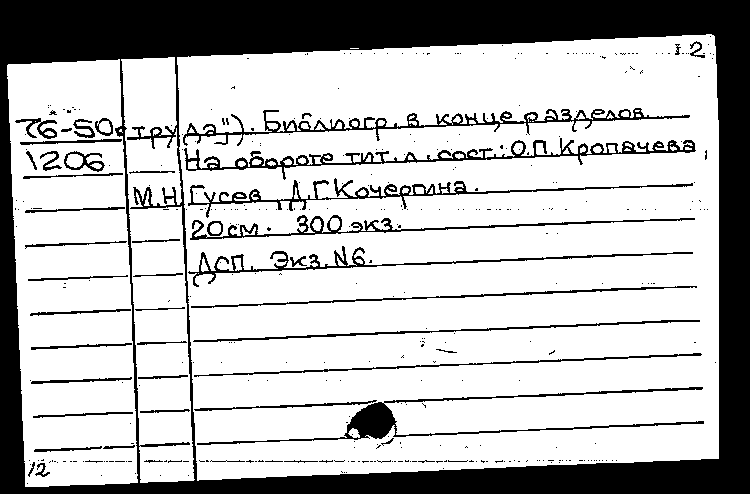 12
76-50с труда"). Библиогр. в конце разделов.
1206 На обороте тит. л. сост.: О.П.Кропачева,
М.Н.Гусев, Д.Г.Кочергина.
20см. 300 экз.
Дсп. Экз. N6.
12